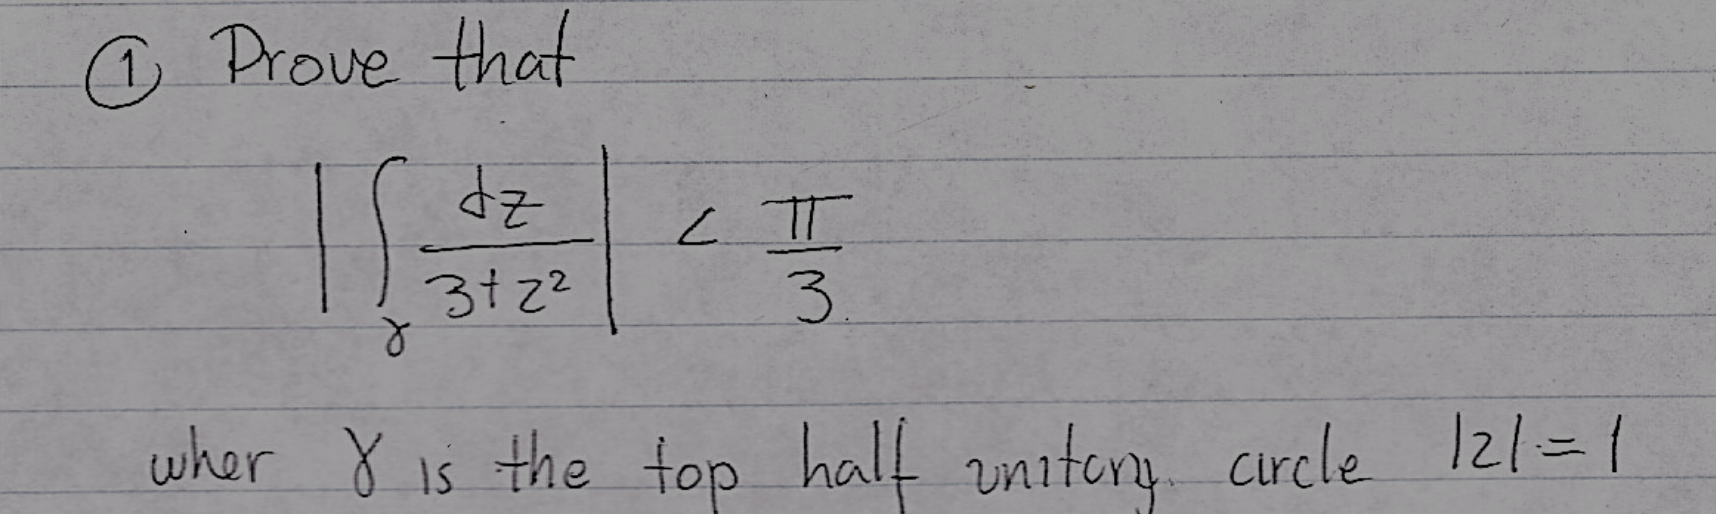 ① Prove that
| ∫_γ dz / (3+z²) | < π/3
wher γ is the top half unitary. circle |z|=1